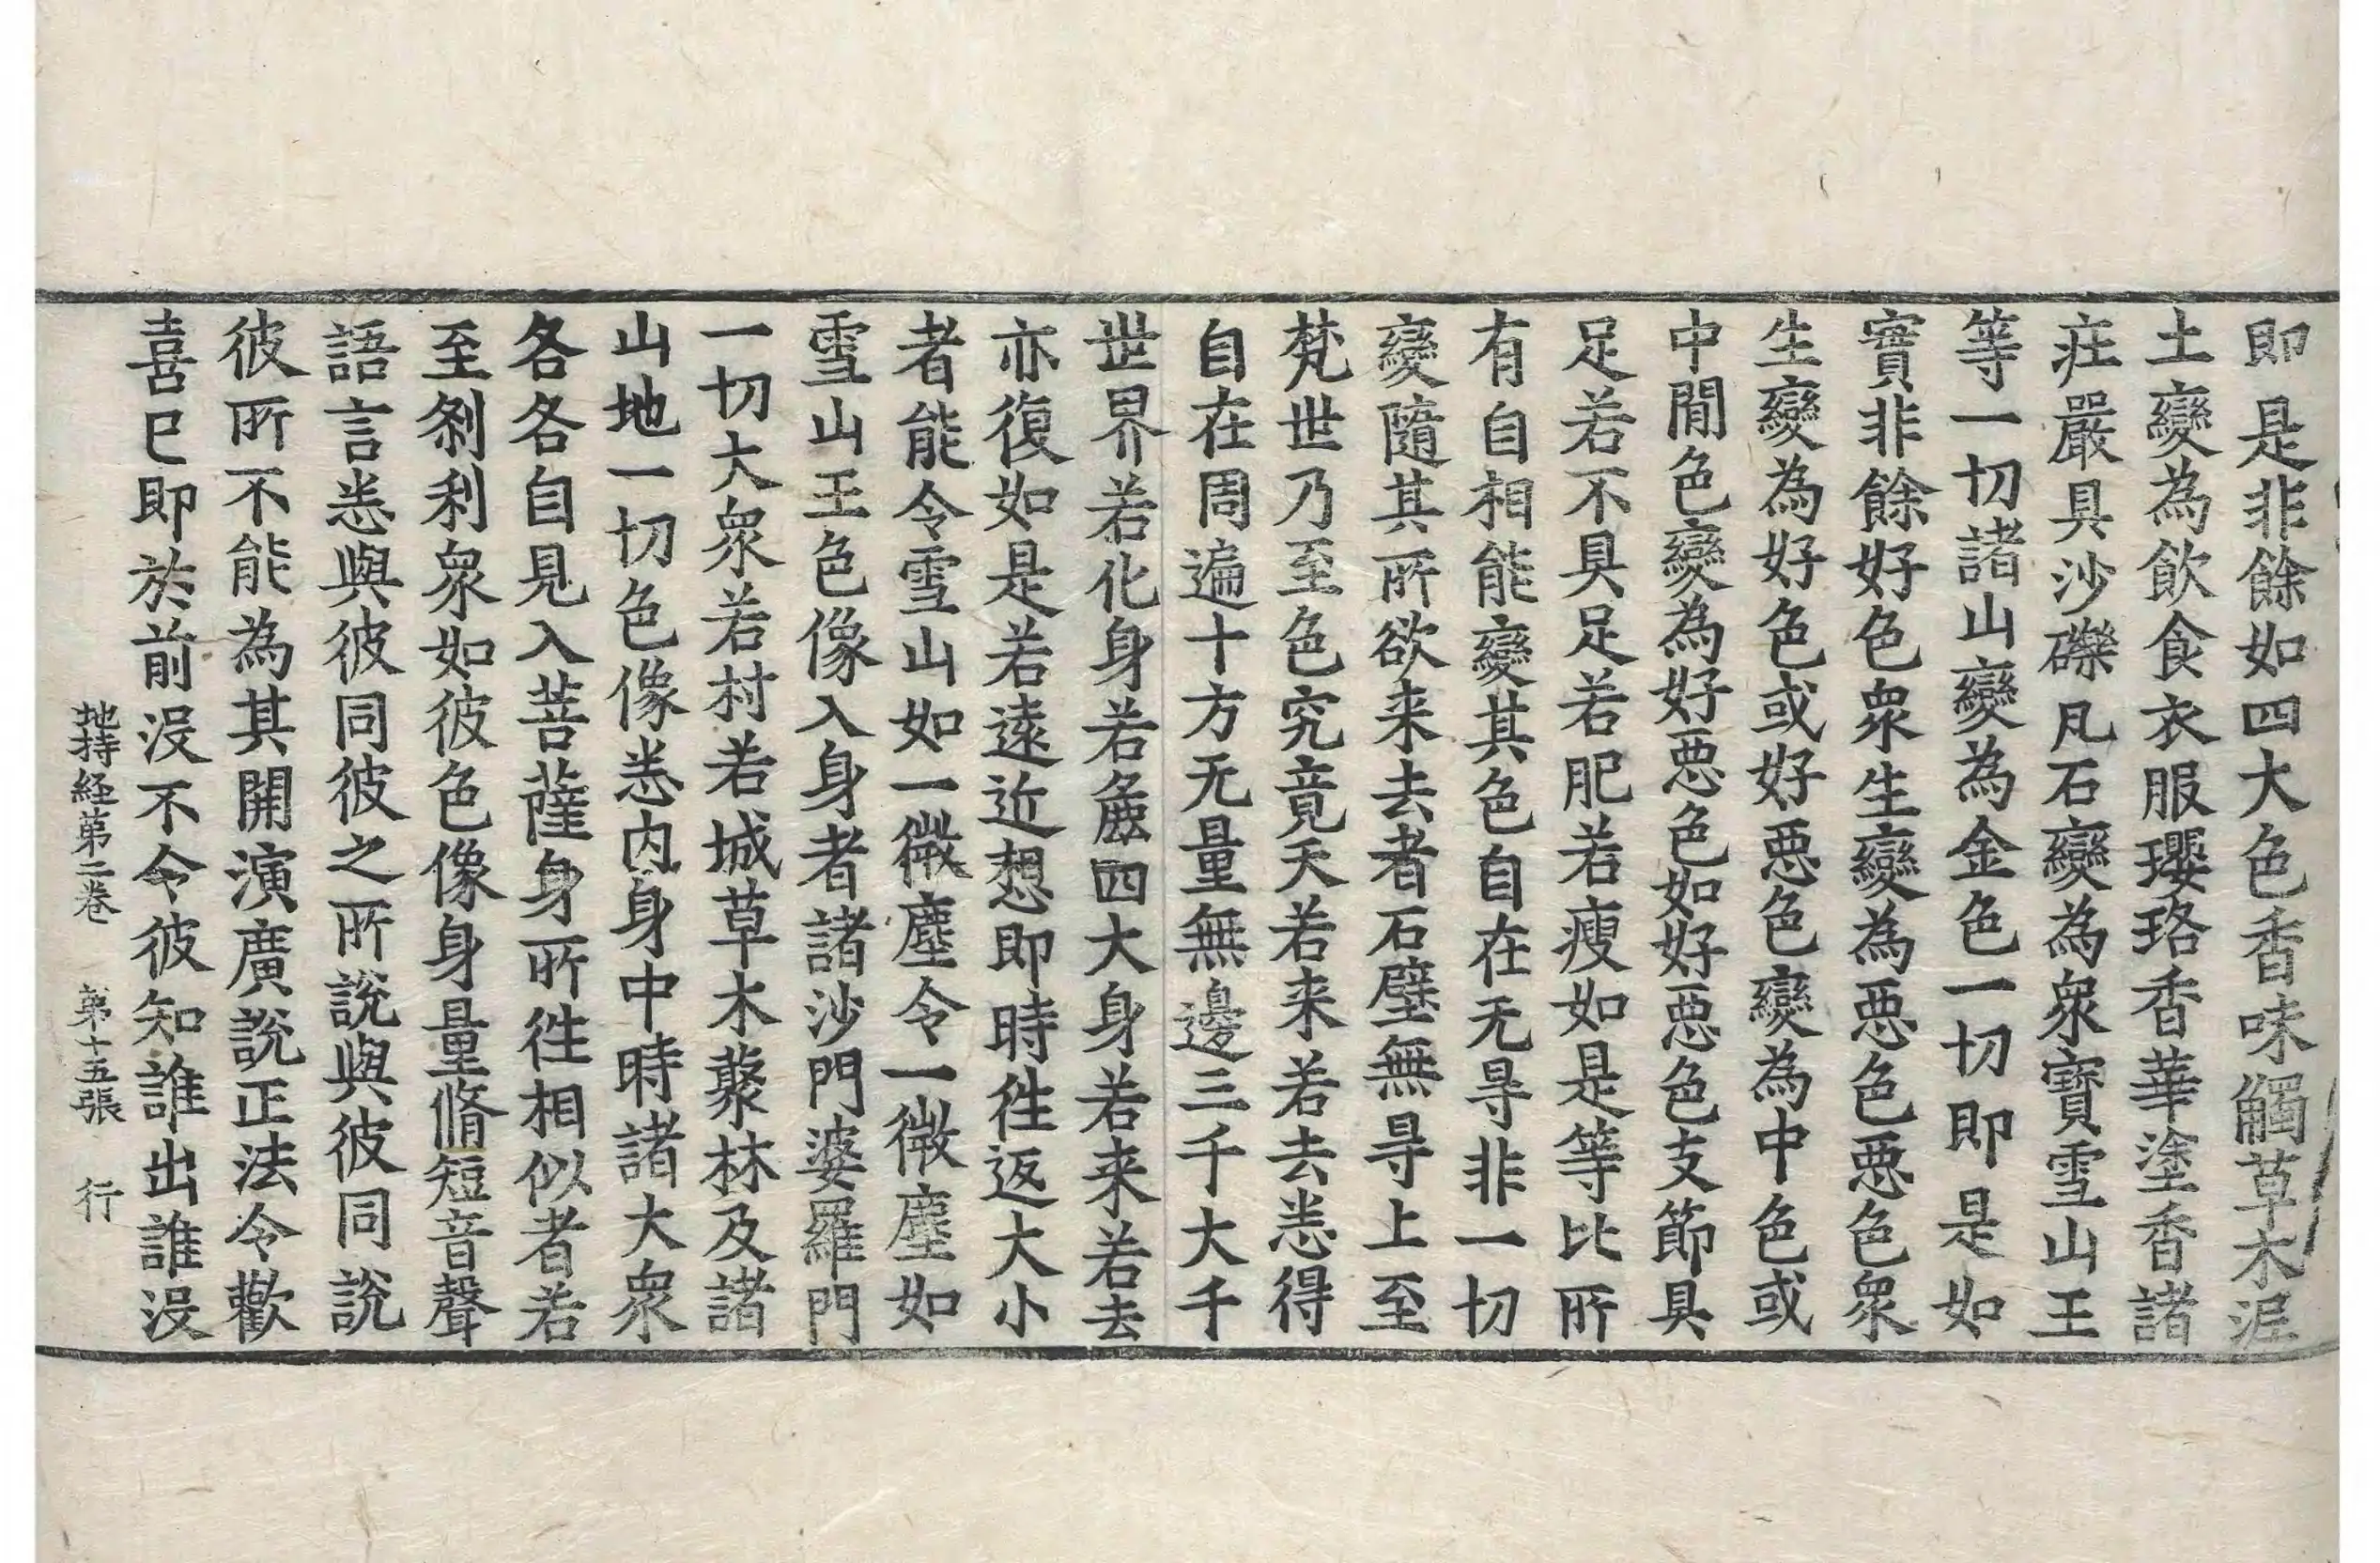 即是非餘如四大色香味觸草木泥
土變為飲食衣服瓔珞香華塗香諸
疘嚴具沙礫凡石變為衆寶雪山王
等一切諸山變為金色一切即是如
實非餘好色衆生變為悪色悪色衆
生變為好色或好悪色變為中色或
中間色變為好悪色如好悪色支節具
足若不具足若肥若瘦如是等比所
有自相能變其色自在无㝵非一切
變隨其所欲来去者石壁無㝵上至
梵世乃至色究竟天若来若去悉得
自在周遍十方无量無邊三千大千
世界若化身若麁四大身若来若去
亦復如是若遠近想即時徃返大小
者能令雪山如一微塵令一微塵如
雪山王色像入身者諸沙門婆羅門
一切大衆若村若城草木藂林及諸
山地一切色像悉内身中時諸大衆
各各自見入菩薩身所徃相似者若
至剎利衆如彼色像身量脩短音聲
語言悉與彼同彼之所說與彼同說
彼所不能為其開演廣說正法令歡
喜已即於前没不令彼知誰出誰没
地持経第二卷 第十五張 行